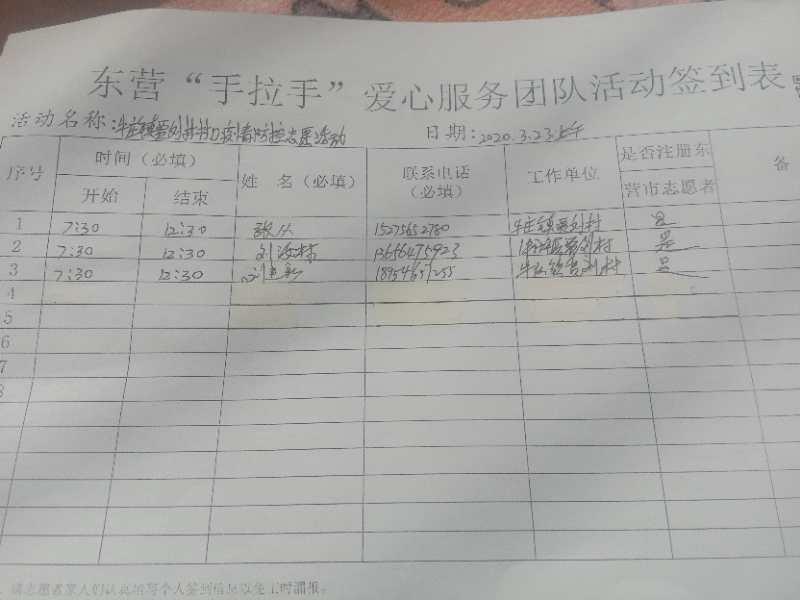 东营“手拉手”爱心服务团队活动签到表
活动名称:牛庄镇 防控志愿活动
日期:2020.3.23上午
序号 时间(必填) 姓 名(必填) 联系电话(必填) 工作单位 是否注册东营市志愿者 备
开始 结束
1 7:30 12:30 15275652780 牛庄镇 刘村 是
2 7:30 12:30 13656475923 牛庄镇 刘村 是
3 7:30 12:30 牛庄镇 刘村 是
4
5
6
7
8
请志愿者家人们认真填写个人签到信息以免工时漏报。